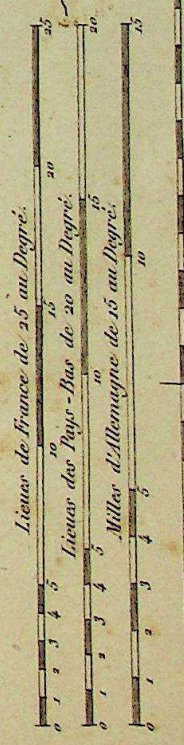 Lieues de France de 25 au Degré.
0 1 2 3 4 5 10 15 20 25
Lieues des Pays-Bas de 20 au Degré.
0 1 2 3 4 5 10 15 20
Milles d'Allemagne de 15 au Degré.
0 1 2 3 4 5 10 15